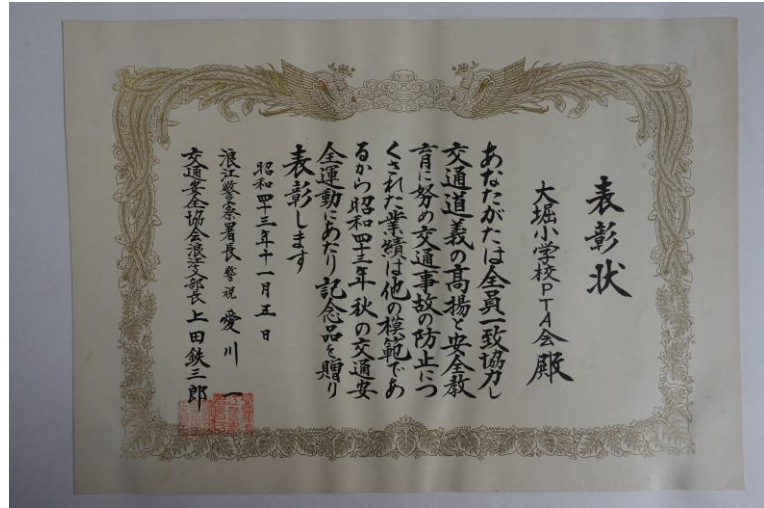 表彰状
大堀小学校PTA会殿
あなたがたは全員一致協力し
交通道義の高揚と安全教
育に努め交通事故の防止につ
くされた業績は他の模範であ
るから昭和四十三年秋の交通安
全運動にあたり記念品を贈り
表彰します
昭和四十三年十一月五日
浪江警察署長警視愛川一
交通安全協会浪江支部長上田鉄三郎